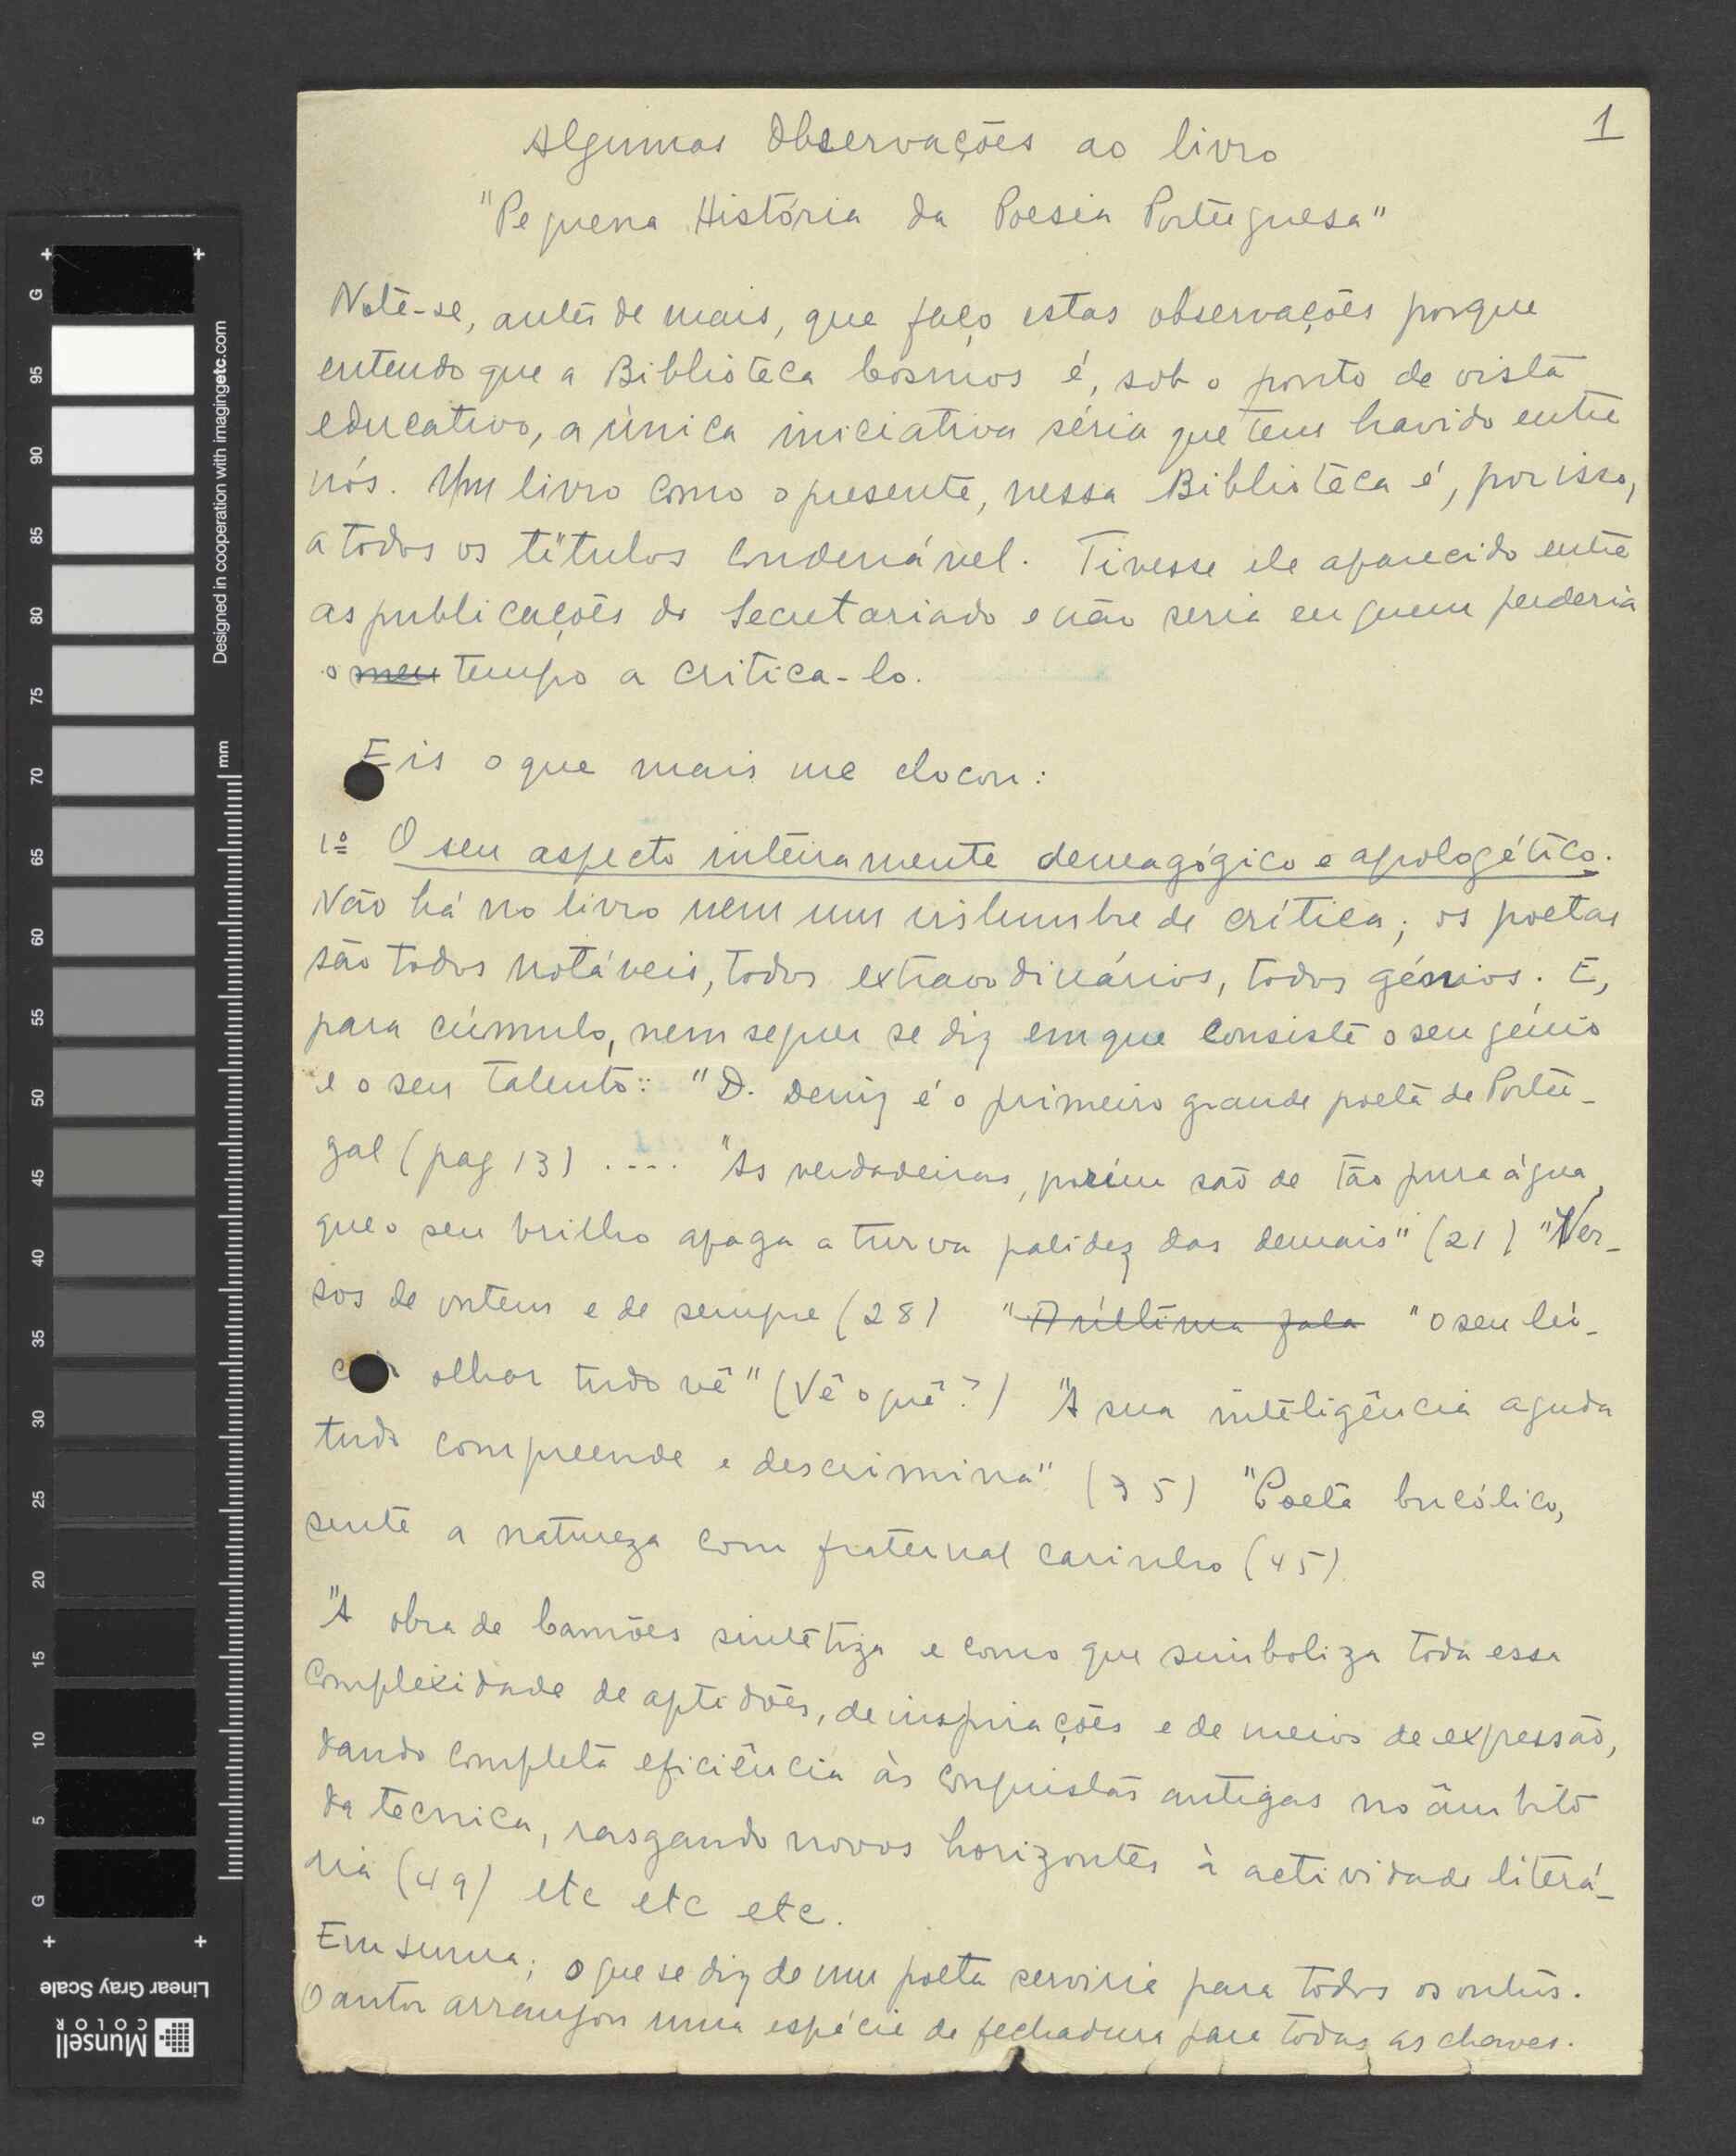 1
Algumas Observações ao livro
"Pequena História da Poesia Portuguesa"
Note-se, antes de mais, que faço estas observações porque
entendo que a Biblioteca Cosmos é, sob o ponto de vista
educativo, a única iniciativa séria que tem havido entre
nós. Um livro como o presente, nessa Biblioteca é, por isso,
a todos os títulos condenável. Tivesse ele aparecido entre
as publicações do Secretariado e não seria eu quem perderia
o meu tempo a critica-lo.
Eis o que mais me chocou:
1º O seu aspecto inteiramente demagógico e apologético.
Não há no livro nem um vislumbre de crítica; os poetas
são todos notáveis, todos extraordinários, todos génios. E,
para cúmulo, nem sequer se diz em que consiste o seu génio
e o seu talento: "D. Deniz é o primeiro grande poeta de Portu-
gal (pag 13) .... "As verdadeiras, porém são de tão pura água,
que o seu brilho apaga a turva palidez das demais" (21) "Ver-
sos de ontem e de sempre (28) "A última fala "o seu lú-
cido olhar tudo vê" (Vê o quê?) "A sua inteligência aguda
tudo compreende e descrimina" (35) "Poeta bucólico,
sente a natureza com fraternal carinho (45)
"A obra de Camões sintetiza e como que simboliza toda essa
complexidade de aptidões, de inspirações e de meios de expressão,
dando completa eficiência às conquistas antigas no âmbito
da tecnica, rasgando novos horizontes à actividade literá-
ria (49) etc etc etc.
Em suma; o que se diz de um poeta serviria para todos os outros.
O autor arranjou uma espécie de fechadura para todas as chaves.
G
95
90
85
80
75
70
65
60
55
50
45
40
35
30
25
20
15
10
5
G
mm
Designed in cooperation with imagingetc.com
Linear Gray Scale
Munsell
COLOR